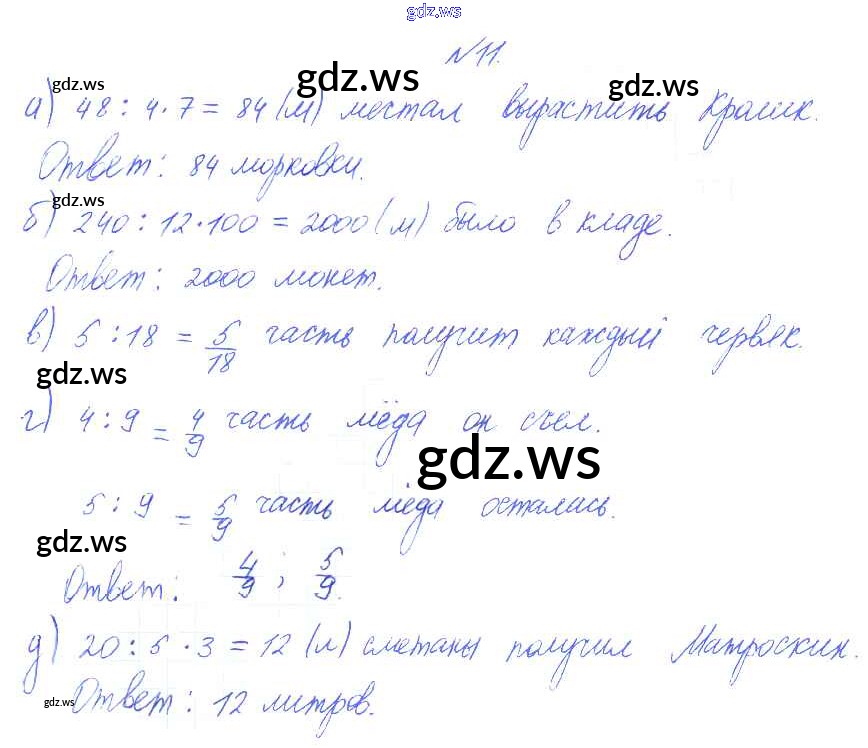 gdz.ws
N 11.
gdz.ws
gdz.ws
gdz.ws
а) 48 : 4 · 7 = 84 (м) мечтал вырастить Кролик.
Ответ: 84 морковки.
gdz.ws
б) 240 : 12 · 100 = 2000 (м) было в кладе.
Ответ: 2000 монет.
в) 5 : 18 = 5/18 часть получит каждый червяк.
gdz.ws
г) 4 : 9 = 4/9 часть мёда он съел.
gdz.ws
5 : 9 = 5/9 часть мёда осталась.
gdz.ws
Ответ: 4/9 ; 5/9.
д) 20 : 5 · 3 = 12 (л) сметаны получил Матроскин.
gdz.ws
Ответ: 12 литров.